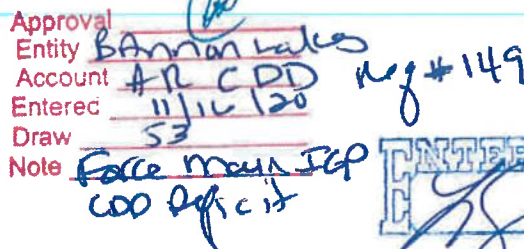 Approval
Entity Bannon Lakes
Account AR CDD
Req #149
Entered 11/16/20
Draw 53
Note Force Main IGP
CDD Deficit
ENTER